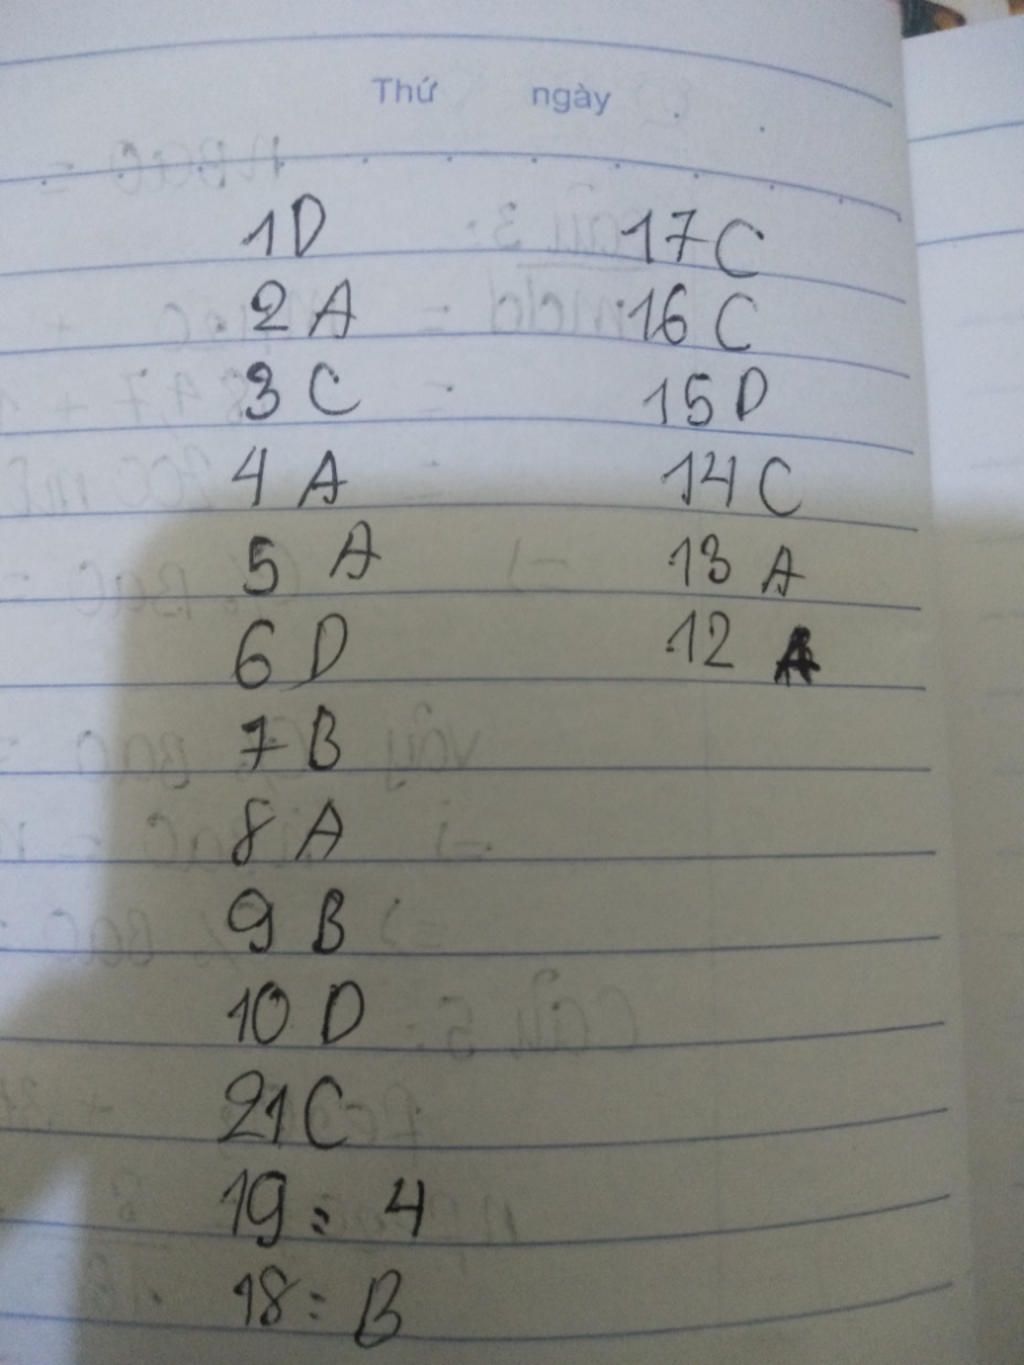 Thứ ngày
1D
2 A
3 C
4 A
5 A
6 D
7 B
8 A
9 B
10 D
21 C
19 = 4
18 = B
17 C
16 C
15 D
14 C
13 A
12 A